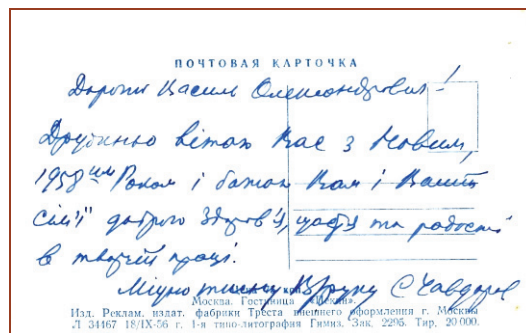 ПОЧТОВАЯ КАРТОЧКА
Дорогий Василь Олександрович!
Дружньо вітаю Вас з Новим,
1958им Роком і бажаю Вам і Вашій
сім'ї доброго здоров'я, щастя та радості
в творчій праці.
Міцно тисну В/руку С Чавдаров
Москва. Гостиница «Пекин».
Изд. Реклам. издат. фабрики Треста внешнего оформления г. Москвы
Л 34467 18/IX-56 г. 1-я типо-литография Гимиз. Зак. 2295. Тир. 20 000.